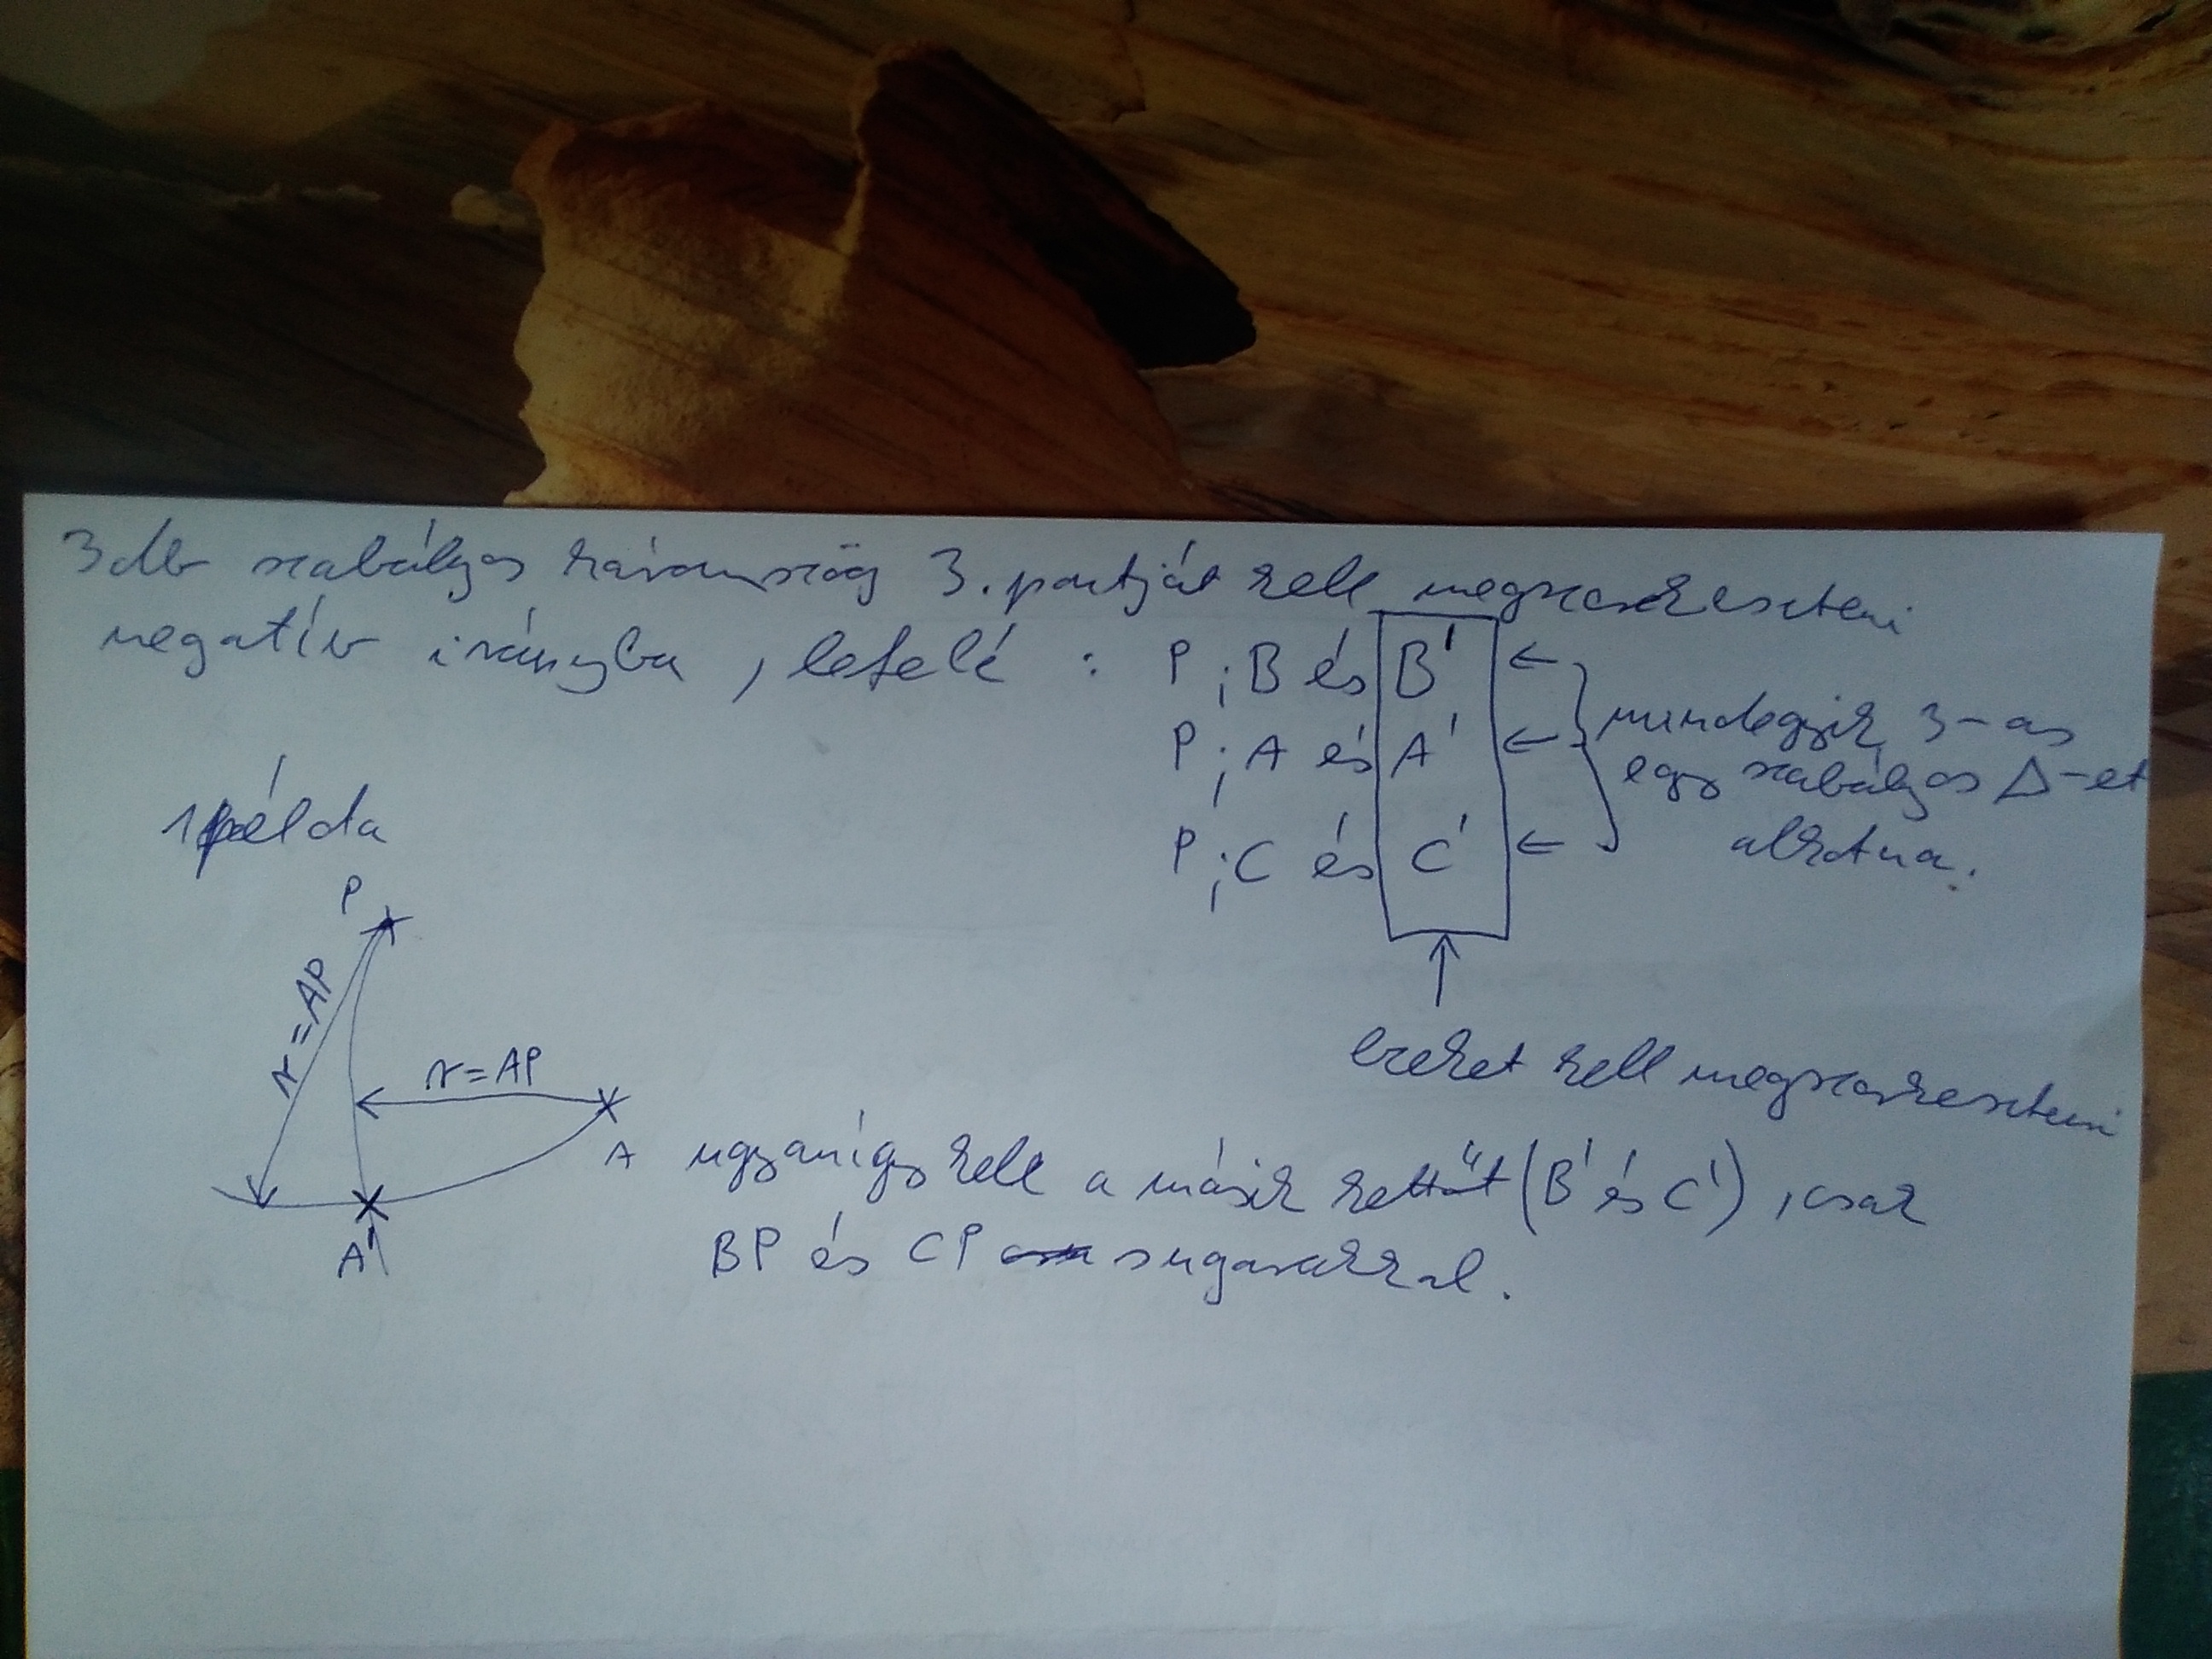 3 db szabályos háromszög 3. pontját kell megszerkeszteni
negatív irányba, lefelé : P; B és B'
P; A és A'
P; C és C'
← mindegyik 3-as
← egy szabályos Δ-et
← alkotna.
↑
ezeket kell megszerkeszteni
1 példa
P
r = AP
r = AP
A
A'
ugyanígy kell a másik kettőt (B' és C'), csak
BP és CP sugarakkal.